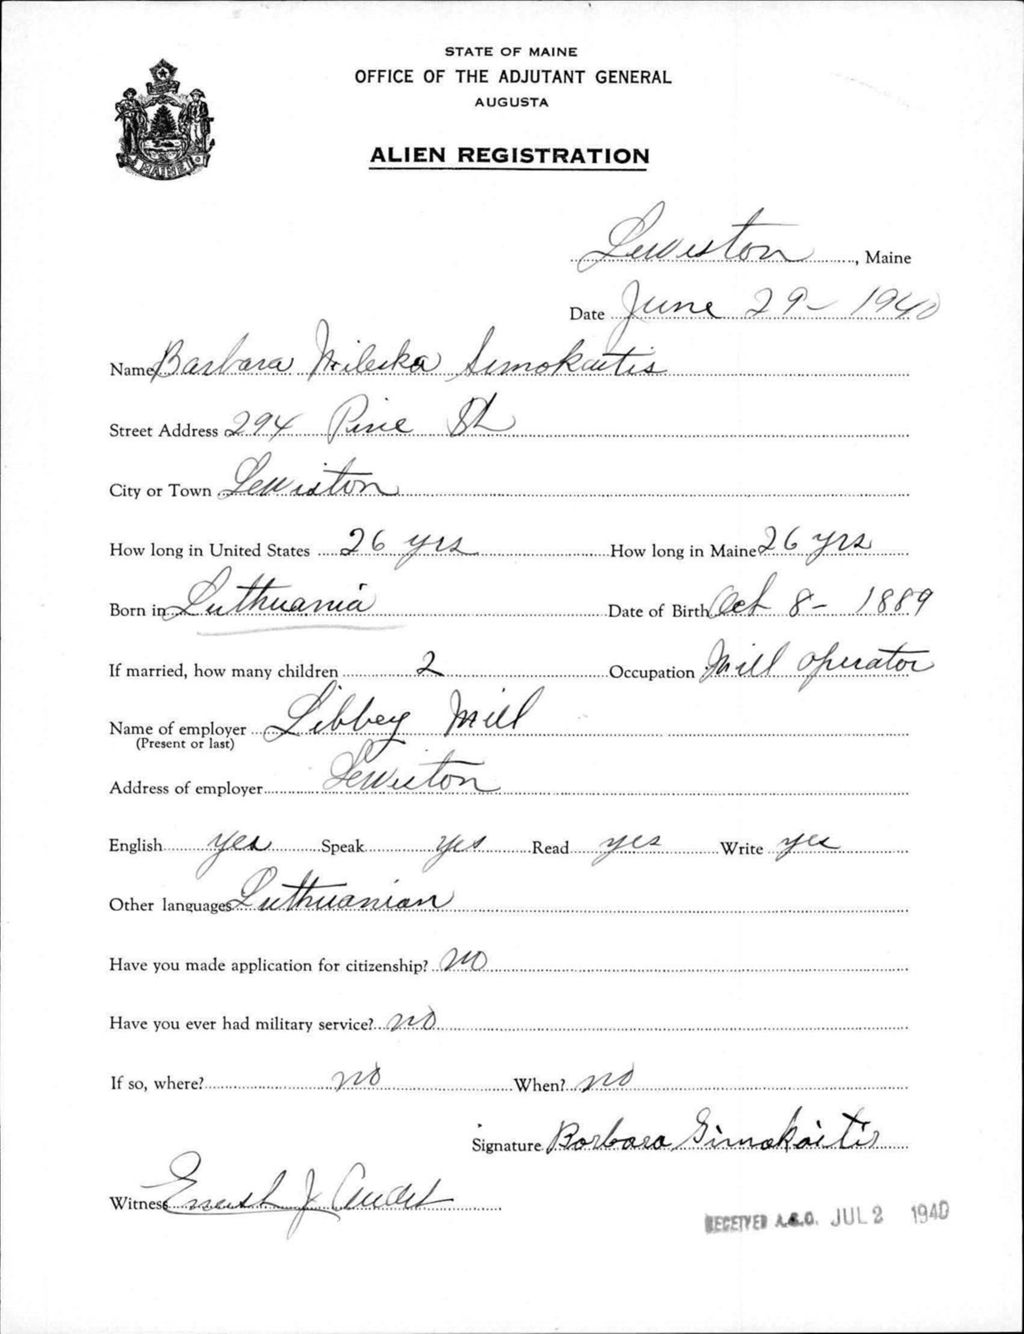 STATE OF MAINE
OFFICE OF THE ADJUTANT GENERAL
AUGUSTA
ALIEN REGISTRATION
MAINE
Lewiston, Maine
Date June 29 - 1940
Name Barbara Mileska Simokaitis
Street Address 294 Pine St
City or Town Lewiston
How long in United States 26 yrs How long in Maine 26 yrs
Born in Lithuania Date of Birth Oct 8 - 1889
If married, how many children 2 Occupation Mill operator
Name of employer Libbey Mill
(Present or last)
Address of employer Lewiston
English yes Speak yes Read yes Write yes
Other languages Lithuanian
Have you made application for citizenship? no
Have you ever had military service? no
If so, where? no When? no
Signature Barbara Simokaitis
Witness Ernest J Audet
RECEIVED A.G.O. JUL 2 1940